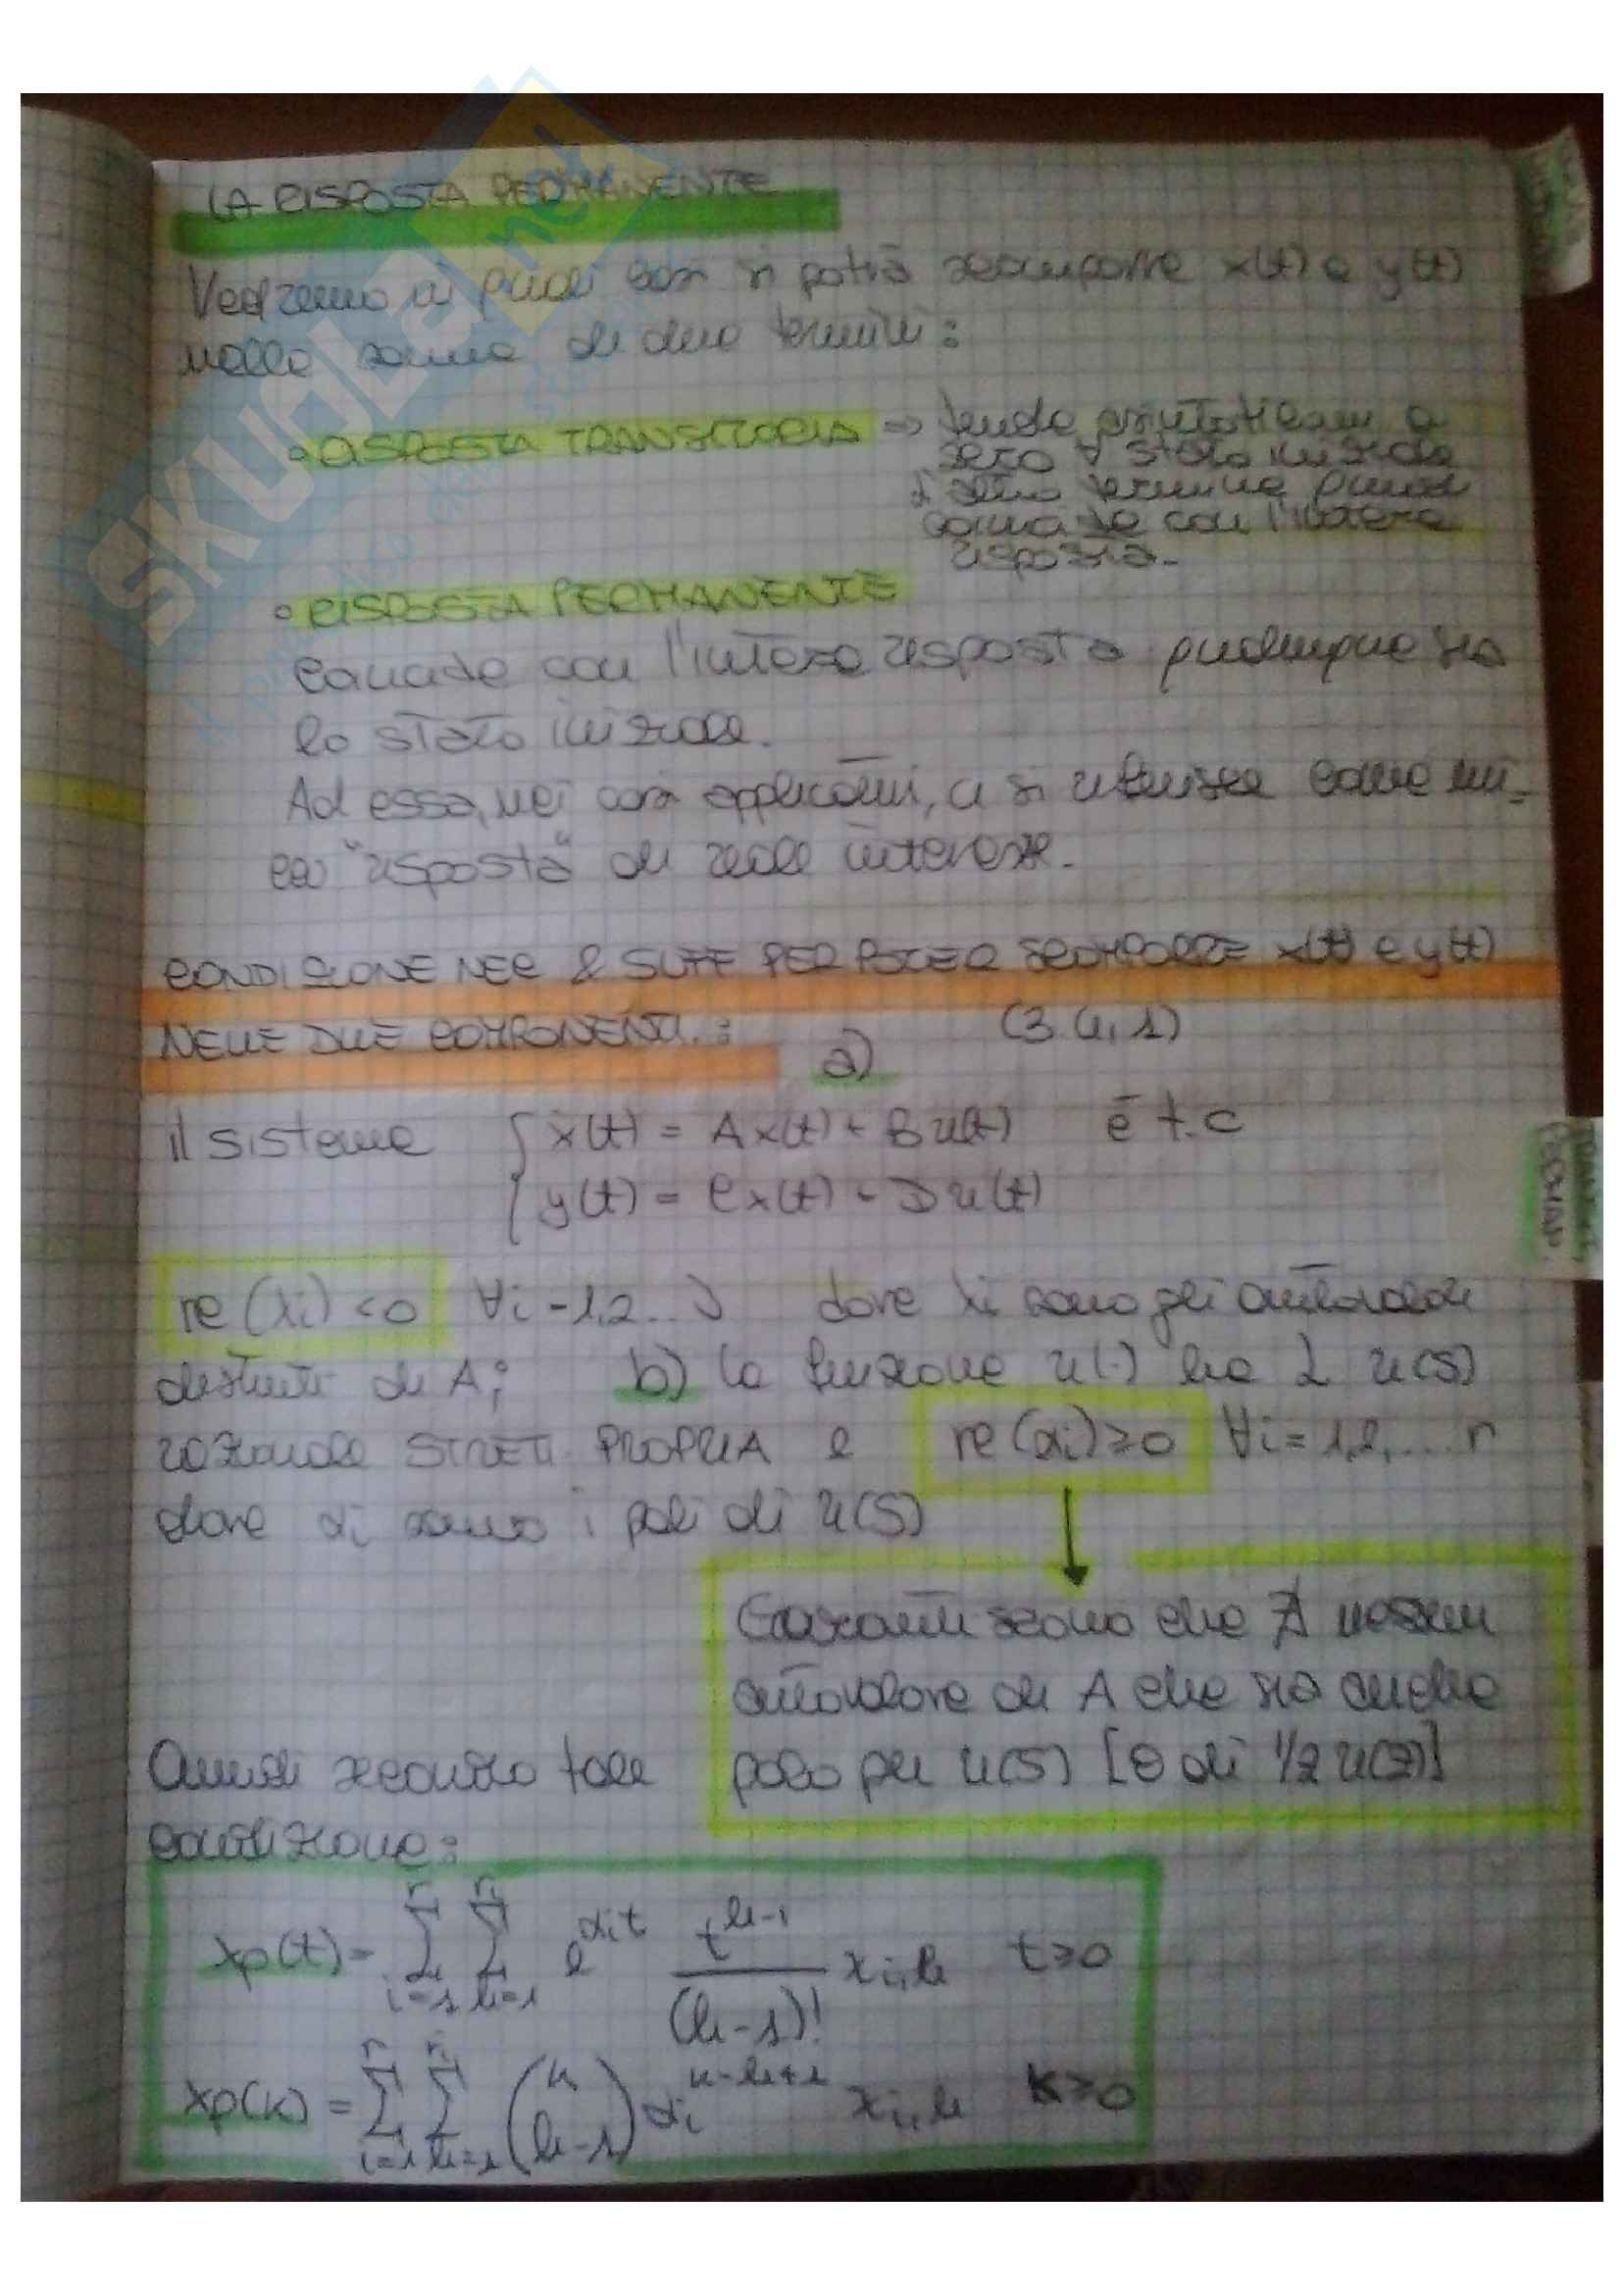 LA RISPOSTA PERMANENTE
Vedremo in quali casi si potrà scomporre x(t) e y(t)
nella somma di due termini:
• RISPOSTA TRANSITORIA => tende asintoticam a
zero ∀ stato iniziale
L'altro termine quindi
coincide con l'intera
risposta.
• RISPOSTA PERMANENTE
coincide con l'intera risposta qualunque sia
lo stato iniziale.
Ad essa, nei casi applicativi, ci si riferisce come uni-
ca "risposta" di reale interesse.
CONDIZIONE NEC & SUFF PER POTER SCOMPORRE x(t) e y(t)
NELLE DUE COMPONENTI: (3.4,1)
a)
il sistema { ẋ(t) = Ax(t) + Bu(t) è t.c
y(t) = Cx(t) + Du(t)
re(λi) <0 ∀i=1,2... dove λi sono gli autovalori
distinti di A; b) la funzione u(·) ha L u(s)
razionale STRETT. PROPRIA e re(αi)≥0 ∀i=1,2,...r
dove αi sono i poli di u(s)
Garantiscono che ∄ nessun
autovalore di A che sia anche
Quindi secondo tale polo per u(s) [o di 1/z u(z)]
condizione:
xp(t)= Σ i=1 r Σ h=1 ri e^αit t^h-1 / (h-1)! xi,h t≥0
xp(k) = Σ i=1 r Σ h=1 ri (k h-1) αi^k-h+1 xi,h k≥0
SKUOLA.net